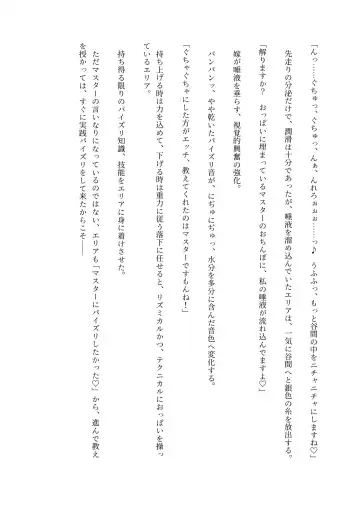 「んっ……ぐちゅっ、ぐちゅっ、んぁ、んれろぉぉぉ……っ♪　うふふっ、もっと谷間の中をニチャニチャにしますね♡」
先走りの分泌だけで、潤滑は十分であったが、唾液を溜め込んでいたエリアは、一気に谷間へと銀色の糸を放出する。
「解りますか？　おっぱいに埋まっているマスターのおちんぽに、私の唾液が流れ込んでますよ♡」
嫁が唾液を垂らす、視覚的興奮の強化。
パンパンッ、やや乾いたパイズリ音が、にぢゅにぢゅっ、水分を多分に含んだ音色へ変化する。
「ぐちゃぐちゃにした方がエッチ、教えてくれたのはマスターですもんね！」
持ち上げる時は力を込めて、下げる時は重力に従う落下に任せると、リズミカルかつ、テクニカルにおっぱいを操っ
ているエリア。
持ち得る限りのパイズリ知識、技能をエリアに身に着けさせた。
ただマスターの言いなりになっているのではない、エリアも「マスターにパイズリしたかった♡」から、進んで教え
を授かっては、すぐに実践パイズリをして来たからこそ――